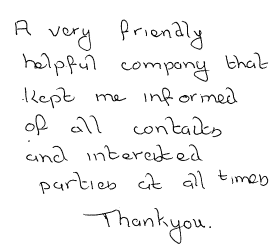 A very friendly
helpful company that
kept me informed
of all contacts
and interested
parties at all times
Thankyou.